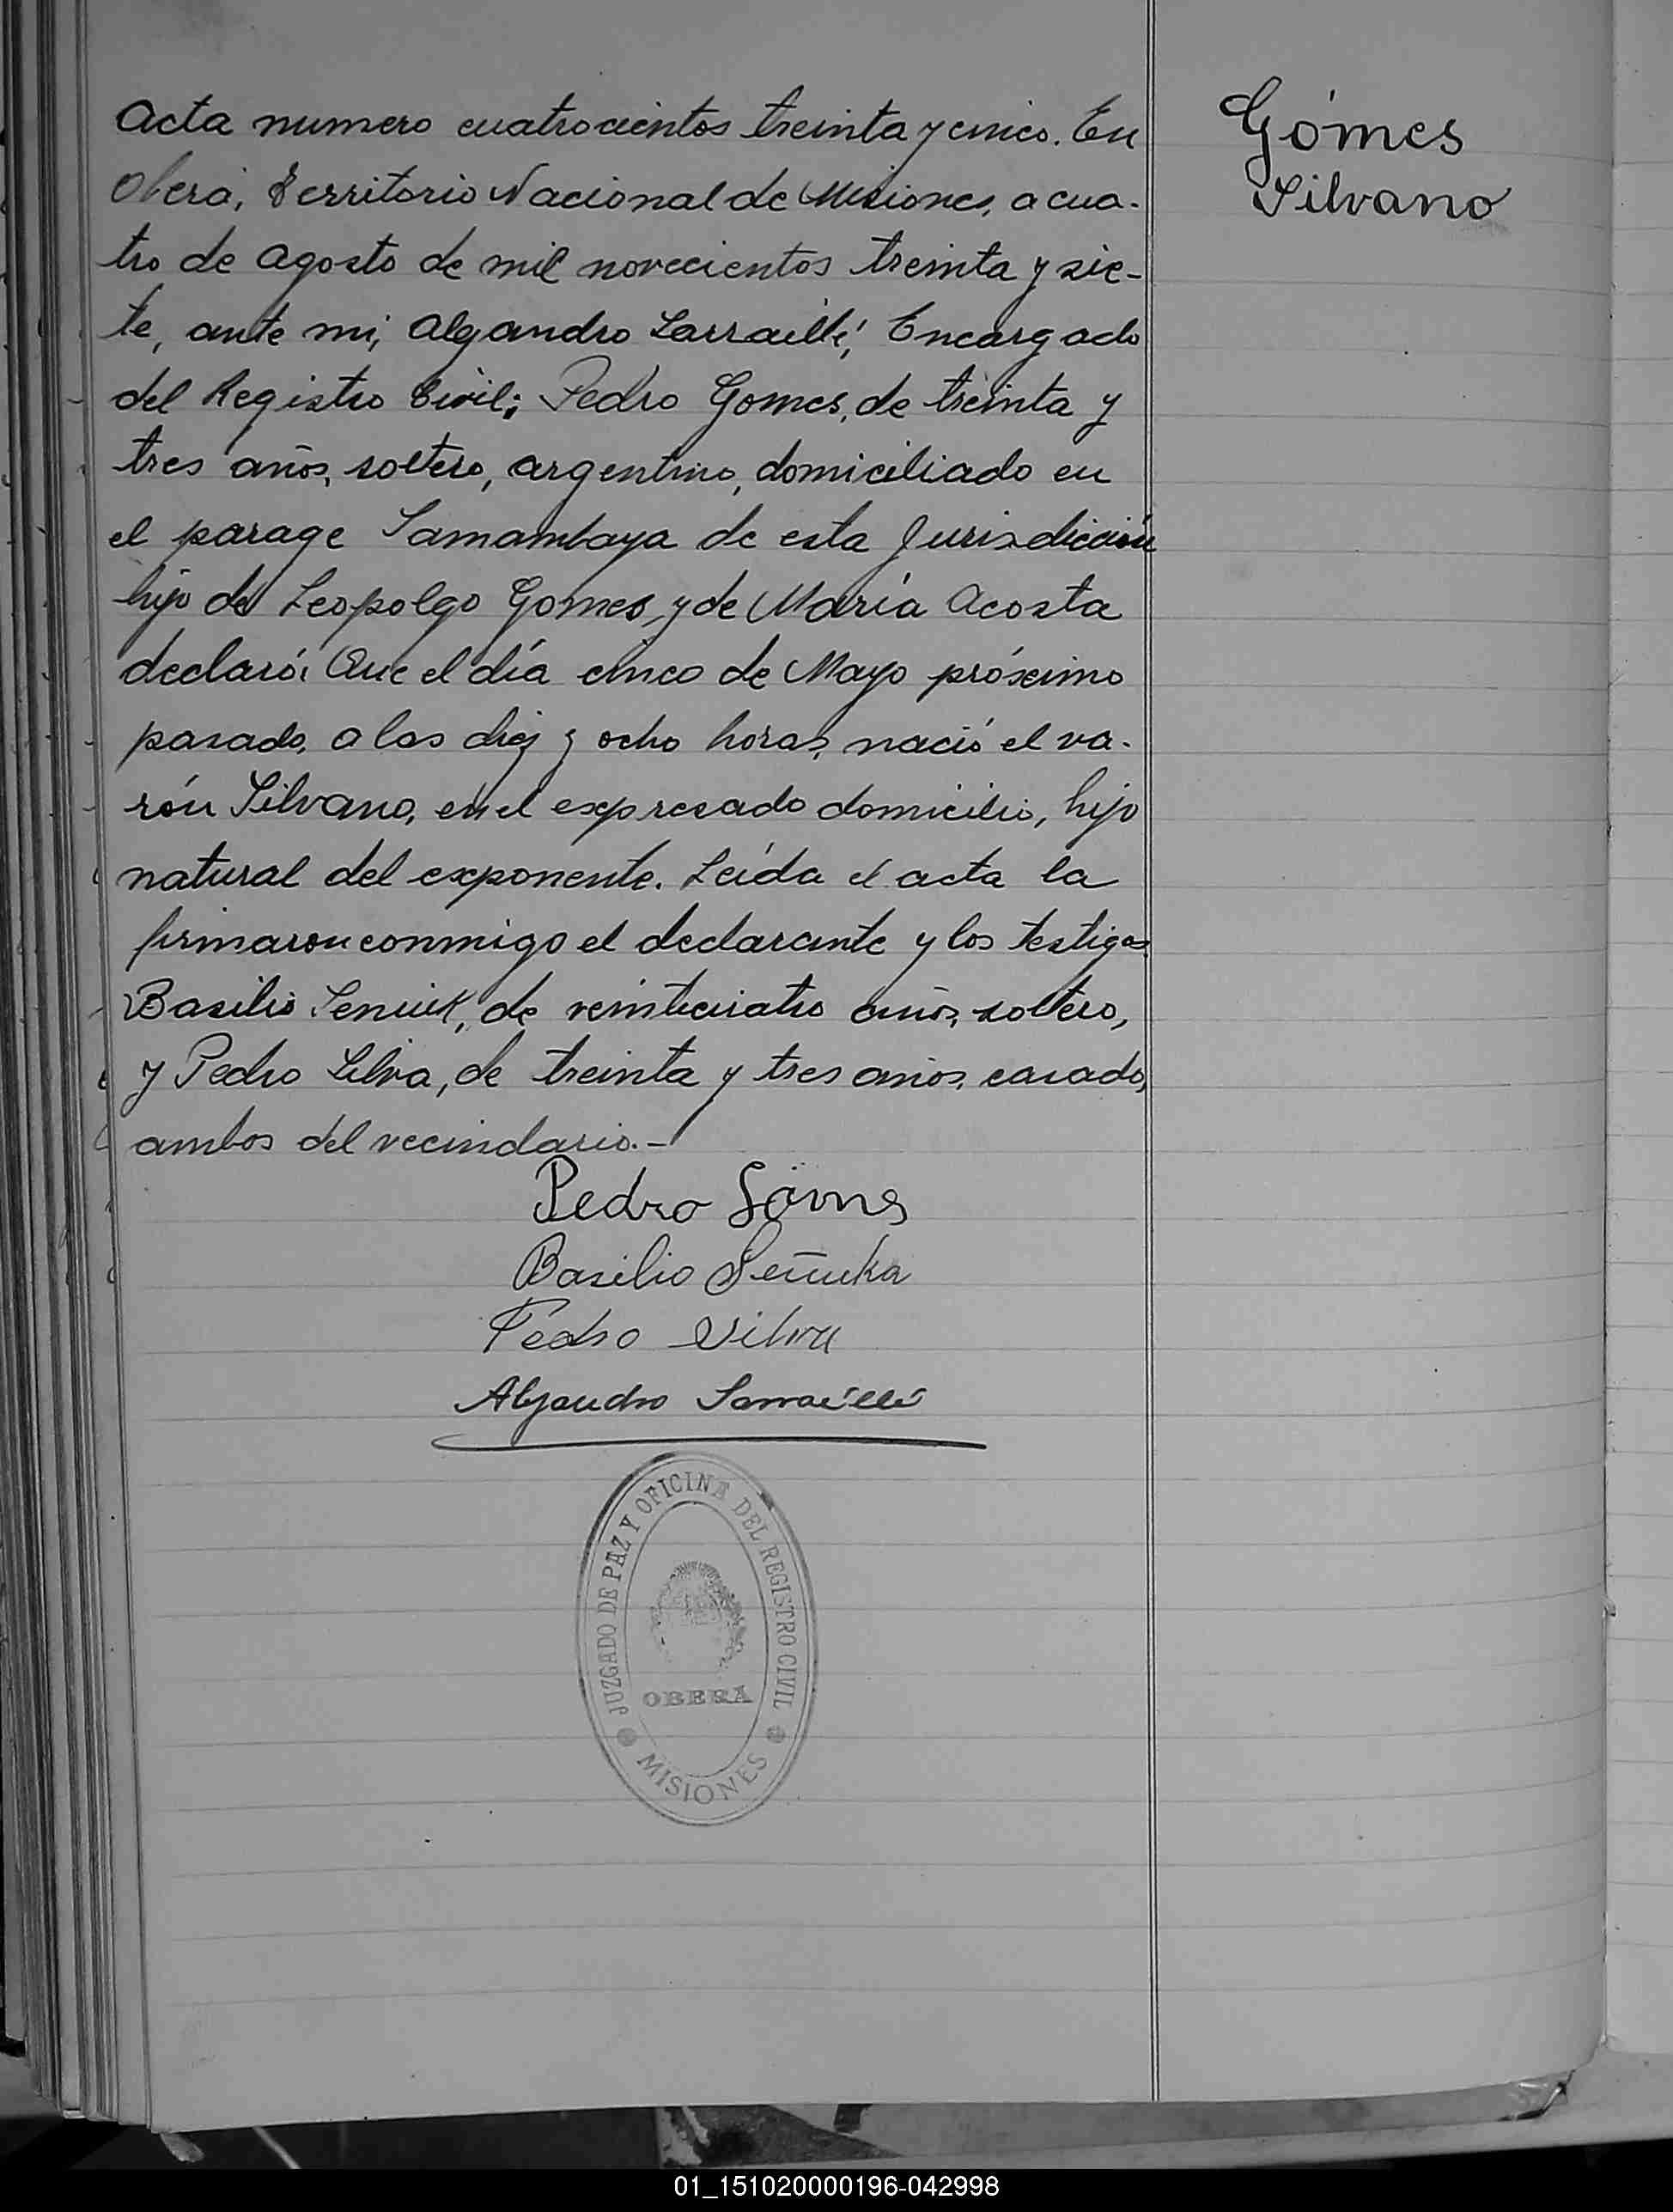 Acta numero cuatrocientos treinta y cinco. En
Oberá, Territorio Nacional de Misiones, a cua-
tro de agosto de mil novecientos treinta y sie-
te, ante mi, Alejandro Larraillé, Encargado
del Registro Civil; Pedro Gomes, de treinta y
tres años, soltero, argentino, domiciliado en
el parage Samambaya de esta Jurisdicción
hijo de Leopolgo Gomes, y de María Acosta
declaró: Que el día cinco de Mayo próximo
pasado, a las diez y ocho horas, nació el va-
rón Silvano, en el expresado domicilio, hijo
natural del exponente. Leída el acta la
firmaron conmigo el declarante y los testigos
Basilio Seniuk, de veinticuatro años, soltero,
y Pedro Silva, de treinta y tres años, casado,
ambos del vecindario.-
Gómes
Silvano
Pedro
Basilio
Pedro Silva
Alejandro Larraillé
JUZGADO DE PAZ Y OFICINA DEL REGISTRO CIVIL
OBERA
MISIONES
01_151020000196-042998